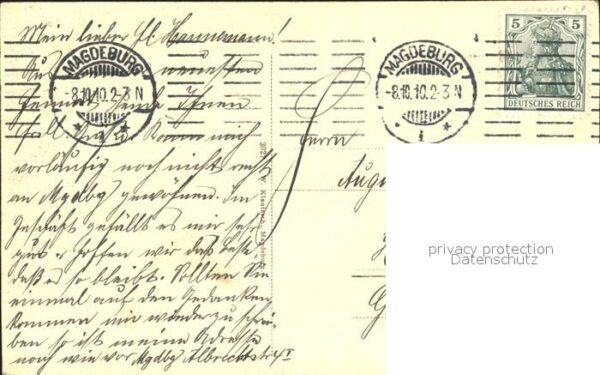 Mein lieber Hannemann!
Aus neuesten
Ihnen
kann mich
vorläufig noch nicht recht
an Mgdbg gewöhnen. Im
Geschäft gefällt es mir sehr
gut & hoffen wir das beste,
daß es so bleibt. Sollten Sie
einmal auf den Gedanken
kommen mir wieder zu schrei-
ben so ist meine Adresse
noch wie vor Mgdbg Albrechtstr
MAGDEBURG
-8.10.10.2-3 N
MAGDEBURG
-8.10.10.2-3 N
5 5
DEUTSCHES REICH
Herrn
privacy protection
Datenschutz